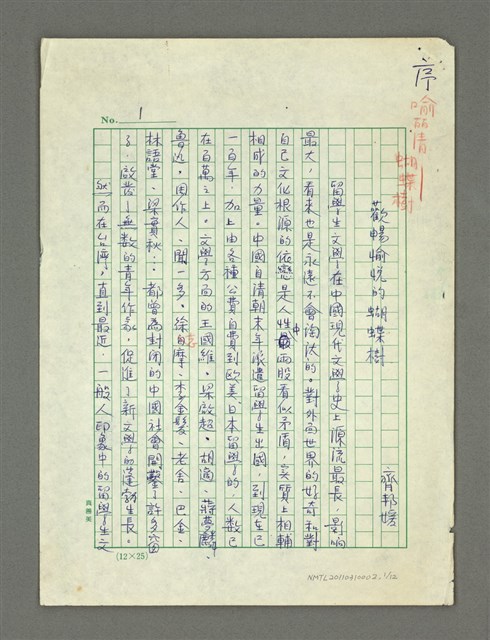 序
喻丽清
蝴蝶樹
No. 1
歡暢愉悅的蝴蝶樹
齊邦媛
留學生文學在中國現代文學史上源流最長,影响
最大,看來也是永遠不會淘汰的。對外面世界的好奇和對
自己文化根源的依戀是人性中兩股看似矛盾,实質上相輔
相成的力量。中國自清朝末年派遣留學生出國,到現在已
一百年,加上由各種公費自費到歐美日本留學的,人數已
在百萬之上。文學方面的王國維、梁啟超、胡適、蔣夢麟、
魯迅、周作人、聞一多、徐志摩、李金髮、老舍、巴金、
林語堂、梁實秋…都曾為封閉的中國社會開鑿了許多窗
子,啟發了無數的青年作家,促進了新文學的蓬勃生長。
然而在台灣,直到最近,一般人印象中的留學生文
(12×25)
NMTL20110310002, 1/12